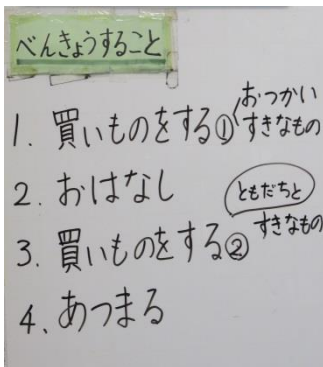 べんきょうすること
1. 買いものをする① おつかい
すきなもの
2. おはなし
3. 買いものをする② ともだちと
すきなもの
4. あつまる